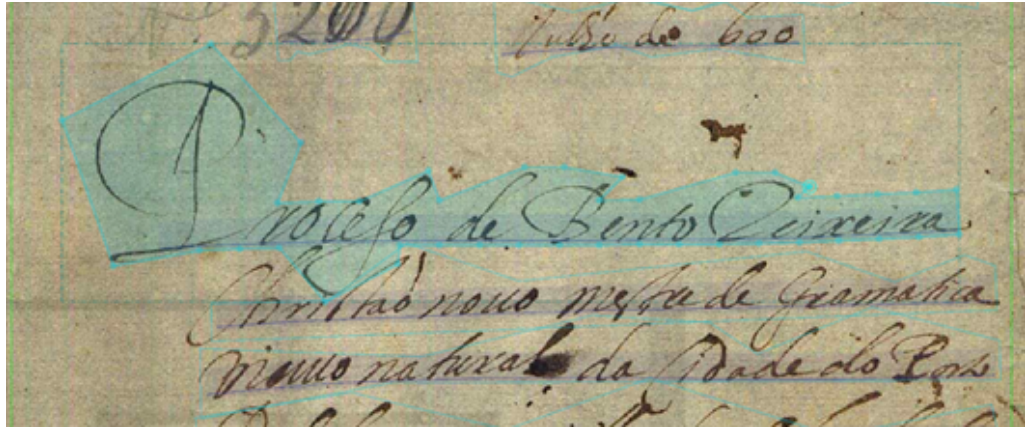 Nº 5206
Julho de 600
Proceso de Bento Teixeira
Christaõ nouo mestre de Gramatica
natural da Cidade do Porto